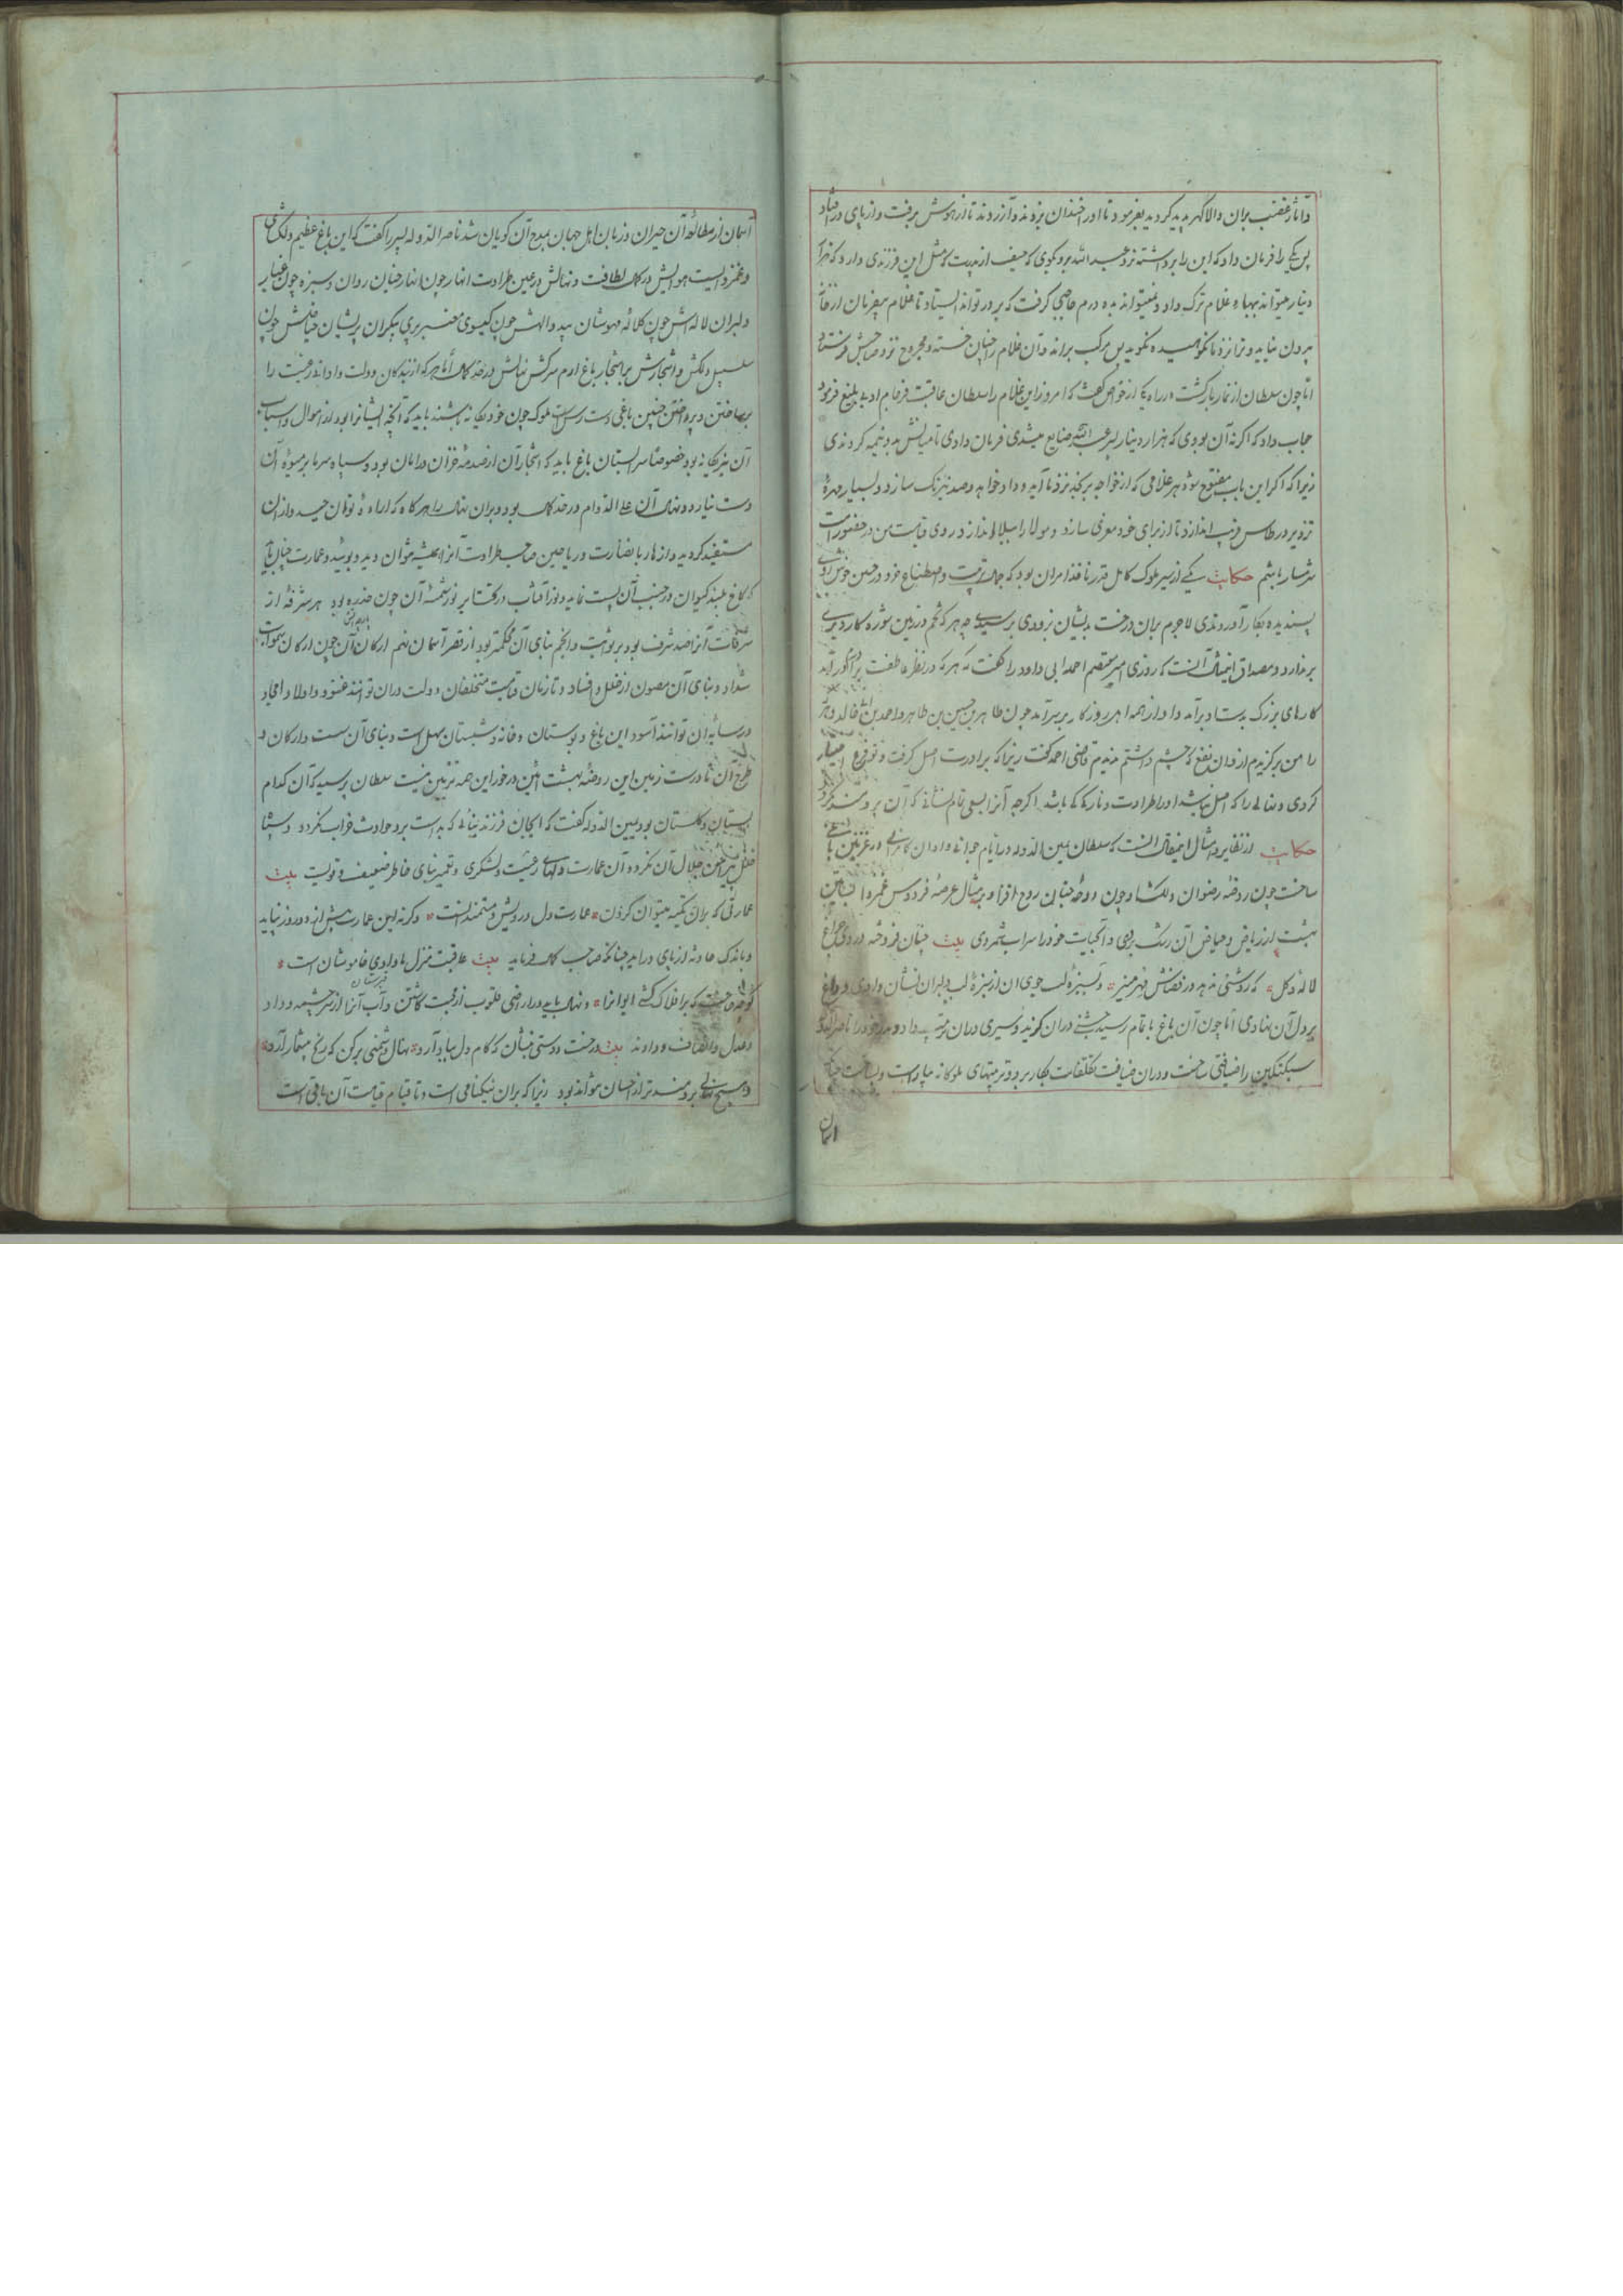 و آثار غضب بران والا گهر پدید گردید بفرمود تا او را چندان بزدند و آزردند تا از هوش برفت و از پای در افتاد
پس یکی را فرمان داد که این را برداشته نزد عبد الله برو بگوی که حیف از مروت که مثل این فرزندی دارد که هزار
دینار میتواند بهاء غلام ترک داد و نمیتواند ده درم حاجبی گرفت که بر در تواند ایستاد تا غلام بیفرمان از خانه
بیرون نیاید و ترا نزد ما نکوهیده نگوید پس مرکب براند و آن غلام را چنان خسته و مجروح نزد صاحبش فرستاد
اما چون سلطان از نماز بازگشت در راه یکی از خواص گفت که امروز این غلام را سلطان عاقبت فرجام ادبی بلیغ فرمود
جواب داد که اگر نه آن بودی که هزار دینار پسر عبد الله ضایع میشدی فرمان دادی تا میانش بدو نیمه کردندی
زیرا که اگر این باب مفتوح شود هر غلامی که از خواجه برنجد نزد ما آید و داد خواهد و صد نیرنگ سازد و بسیار مهرهٔ
تزویر در طاس فریب اندازد تا از برای خود معرفی سازد و مولا را ببلا اندازد و روی قیامت من در حضور است
شرمسار باشم حکایت یکی از سیر ملوک کامل قدر نافذ امران بود که جمله تربیت و اصطناع خود در حسن خوش روی
پسندیده بکار آوردندی لاجرم بران درخت بدیشان بزودی برسیدی چه هر که تخم در زمین شوره کارد بری
بر ندارد و مصداق اینمقال آنست که روزی امیر معتصم احمد ابی داود را گفت که هر که در نظر عاطفت برادرم مامون در آید
کارهای بزرگ بدستاد برآید و او را از همه امر روزگار بر سر آید چون طاهر بن حسین بن طاهر و احمد بن ابی خالد و هر که
را من برگزیدم از و آن نفع که چشم داشتم ندیدم قاضی احمد گفت زیرا که برادرت اصل گرفت و تو فرع اختیار
کردی و نهالی را که اصل نباشد او را طراوت و نازکی کی باشد اگرچه آنرا بسعی تمام نشانی که آن برومند نگردد
حکایت از نظایر و امثال اینمقال آنست که سلطان یمین الدوله در ایام جوانی و اوان کامرانی در غزنین باغی
ساخت چون روضهٔ رضوان دلگشا و چون دوحهٔ جنان روح افزا و بر مثال عرصهٔ فردوس غمزدا بساتین
بهشت از ریاض و حیاض آن رشک بردی و آبحیات خود را سراب شمردی بیت چنان فروخته در وی چراغ
لاله و گل * که روشنی ندهد در فضاش مهر منیر * و سبزه لب جوی آن از سبزهٔ لب دلبران نشان دادی و داغ
بر دل آن نهادی اما چون آن باغ باتمام رسید جشنی دران گزید و سیری دران مرتب داد و پدر خود را ناصر الدوله
سبکتکین را ضیافتی ساخت و دران ضیافت تکلفات بکار برد و ترتیبهای ملوکانه بیاراست و
آسمان
آسمان از مطالعهٔ آن حیران و زبان اهل جهان بمدح آن گویان شد ناصر الدوله پسر را گفت که این باغ عظیم دلکش
و غمزداییست هوایش در کمال لطافت و نهالش در عین طراوت انهار چون انهار جنان روان و سبزه چون عذار
دلبران لاله اش چون کلاله مهوشان بید والهش چون گیسوی معنبر پری پیکران پریشان حیاضش چون
سلسبیل دلکش و اشجارش بر اشجار باغ ارم سرکش نهالش در حد کمال اما هر که از بندگان دولت داد اند رخت را
بر ساختن و پرداختن چنین باغی دست رس است ملوک چون خود یگانه باشند باید که آنچه ایشانرا بود از اموال و اسباب
آن نیز یگانه بود خصوصا سرابستان باغ باید که اشجار آن از صدمهٔ خزان در امان بود و سپاه سرما بر میوه آن
دست نیارد و نهال آن علی الدوام در حد کمال بود و بران نهال را هر گاه که اراده توان چید و ازان
مستفید گردید و ازهار با نضارت و ریاحین صاحب طراوت آنرا همیشه توان دید و بویید و عمارت چنان باید
که کاخ بلند کیوان در جنب آن پست نماید و نور آفتاب در گشتا بر نور شمسهٔ آن چون ذره بود هر شرفهٔ از
شرفات آنرا صد شرف بود بر بروج و انجم بنای آن محکمتر بود از قصر آسمان نهم ارکان آن چون ارکان سموات
شداد و بنای آن مصون از خلل و فساد و تا زمان قیامت متخلفان دولت دران توانند غنود و اولاد و امجاد
در سایهٔ آن توانند آسود این باغ و بوستان و خانه و شبستان سهل است و بنای آن سست و ارکان و
طرح آن نادرست زمین این روضهٔ بهشت آئین در خور این همه تزیین نیست سلطان پرسید که آن کدام
بستان و گلستان بود یمین الدوله گفت که ایجان فرزند بنائی که بدست برد حوادث خراب نگردد و سپاه
خلل پیرامن جلال آن نگردد آن عمارت دلهای رعیت و لشکری و تعمیر بنای خاطر ضعیف و قویست بیت
عمارتی که بران تکیه میتوان کردن * عمارت دل درویش و مستمندانست * وگرنه این عمارت بیش از ده روز نپاید
و باندک حادثه از پای در آید چنانکه صاحب کمال فرماید بیت عاقبت منزل ما وادی خاموشان است *
گو چه حاجت که بر افلاک کشی ایوانرا * و نهال باید در اراضی قلوب از محبت کاشتن و آب آنرا از سرچشمه و داد
و عدل و انصاف و داد نه بیت درخت دوستی بنشان که کام دل ببار آرد * نهال دشمنی برکن که رنج بیشمار آرد *
و هیچ نهالی برومند تر از احسان نتواند بود زیرا که بران نیکنامی است و تا قیام قیامت آن باقی است